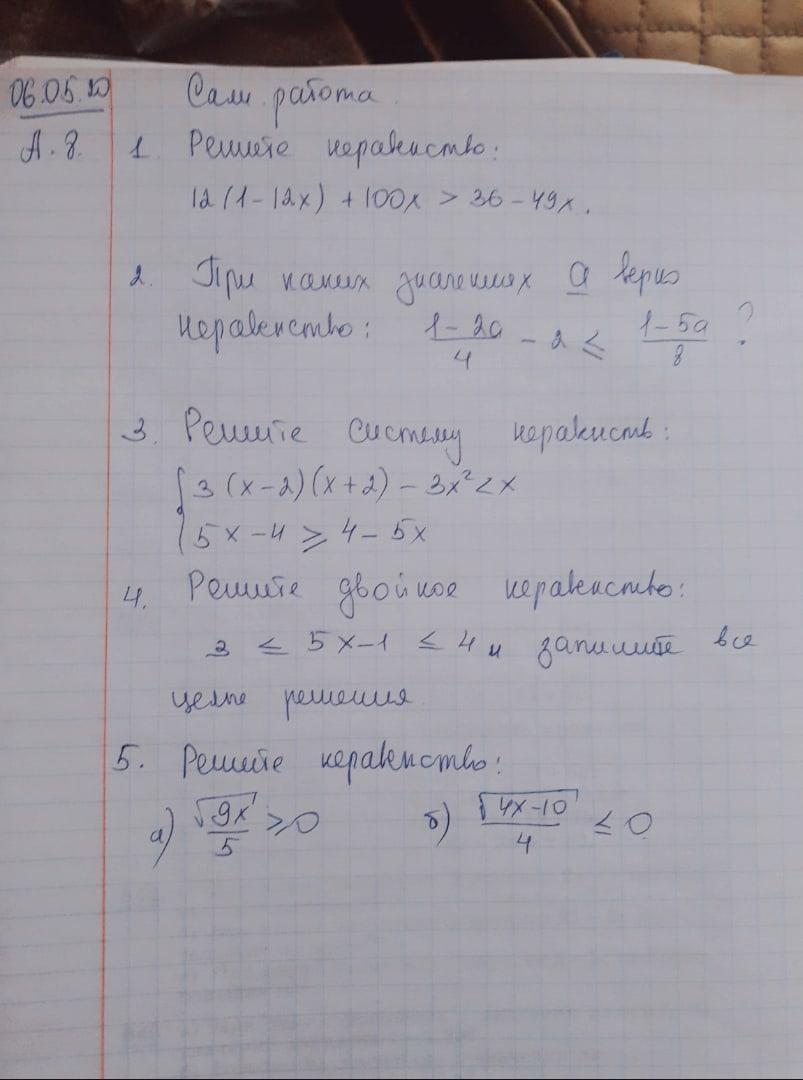 06.05.20 Сам. работа.
А. 8. 1. Решите неравенство:
12(1-12x) + 100x > 36 - 49x.
2. При каких значениях a верно
неравенство: (1-2a)/4 - 2 ≤ (1-5a)/8 ?
3. Решите систему неравиств:
{ 3(x-2)(x+2) - 3x² < x
5x-4 ≥ 4-5x
4. Решите двойное неравенство:
3 ≤ 5x-1 ≤ 4 и запишите все
целые решения
5. Решите неравенство:
а) √9x/5 ≥ 0 б) √4x-10/4 ≤ 0